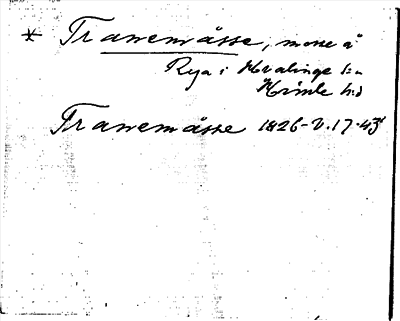 * Tranemåsse, mosse å
Rya i Kvalinge s:n
Himle h:d
Tranemåsse 1826-2.17.43